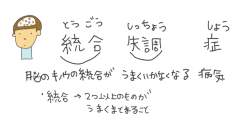 とうごう しっちょう しょう
統合 失調 症
脳のキノウの統合が うまくいかなくなる 病気
・統合 → 2つ以上のものが
うまくまとまること